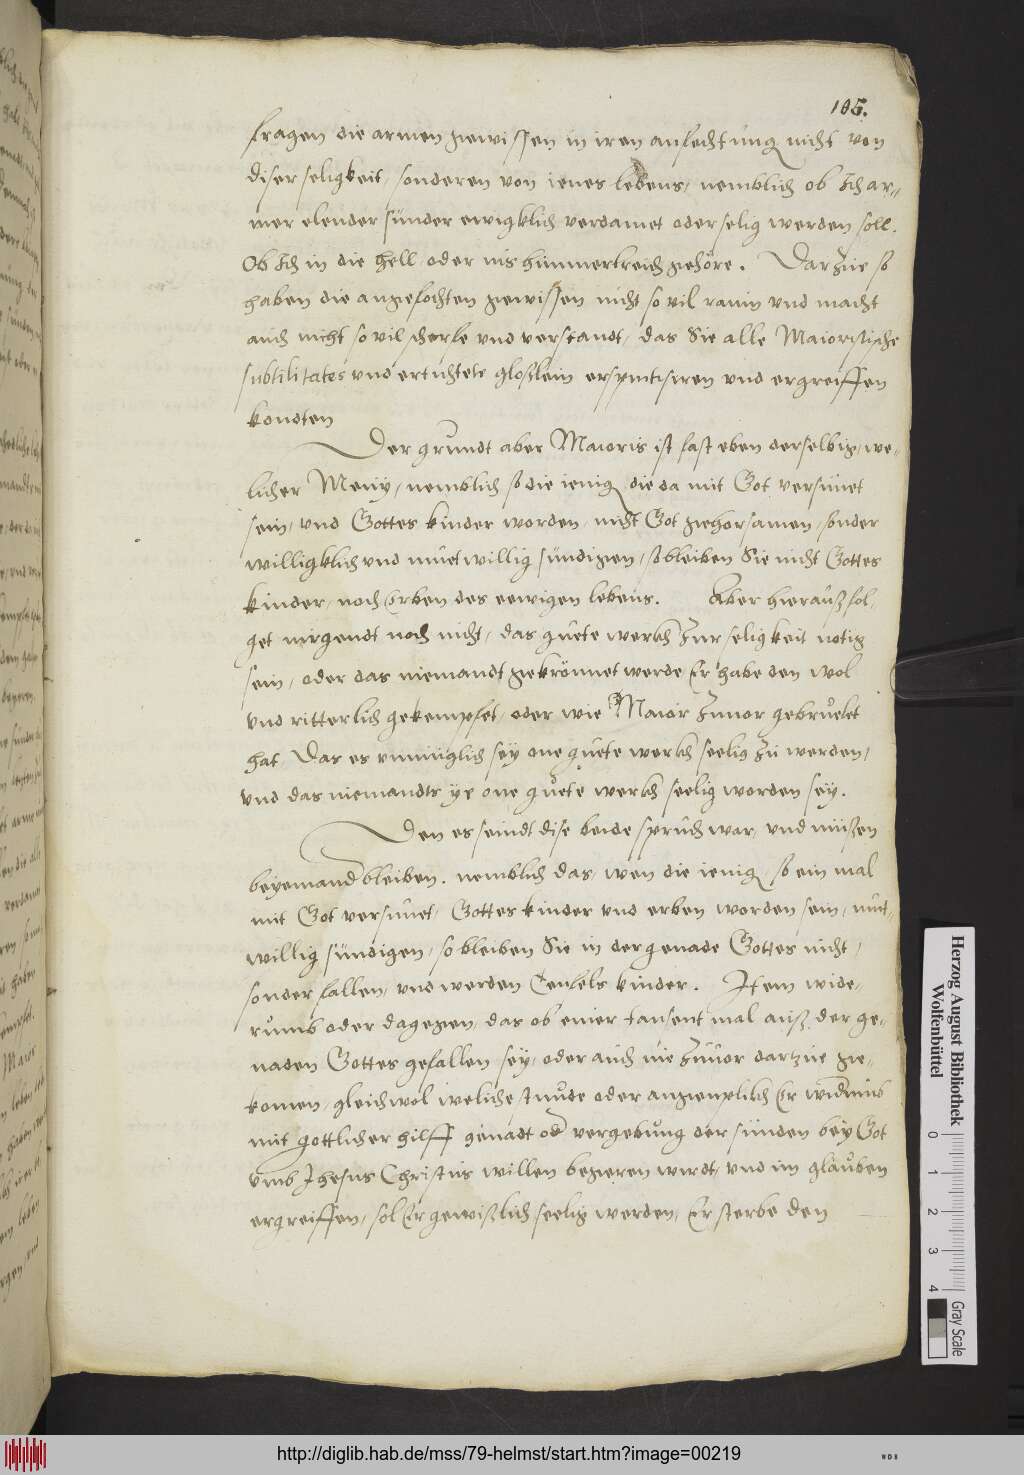 105.
fragen die armen gewissen in iren anfechtung nicht von
diser seligkeit, sonderen von ienes lebens, nemblich ob Ich ar-
mer elender sünder ewigklich verdamet oder selig werden soll.
Ob Ich in die hell, oder ins himmerlreich gehöre. Darzue so
haben die angefochten gewissen nicht so vil raum vnd macht
auch nicht so vil scherfe vnd verstandt, das Sie alle Maioristische
subtilitates vnd ertichtete gloßlein erspintisiren vnd ergreiffen
kondten
Der grundt aber Maioris ist fast eben derselbig, we-
licher Menij, nemblich so die ienig die da mit Got versünet
sein, vnd Gottes kinder worden, nicht Got gehorsamen, sonder
willigklich vnd muetwillig sündigen, so bleiben Sie nicht Gottes
kinder, noch Erben des eewigen lebens. Aber hierauß fol-
get nirgendt noch nicht, das guete werckh zur seligkeit notig
sein, oder das niemandt gekrönnet werde Er habe den wol
vnd ritterlich gekempfet, oder wie Maior zuuor gebruelet
hat, Das es vnmüglich sey one guete werckh seelig zu werden,
vnd das niemandts ye one guete werckh seelig worden sey.
Den es seindt dise beide spruch war, vnd müßen
beyemand bleiben. nemblich das, wen die ienig, so ein mal
mit Got versünet, Gottes kinder vnd erben worden sein, mut-
willig sündigen, so bleiben Sie in der genade Gottes nicht,
sonder fallen, vnd werden Teufels kinder. Item wide-
rumb oder dagegen, das ob einer tausent mal auß der ge-
naden Gottes gefallen sey, oder auch nie zuuor dartzue ge-
komen, gleichwol weliche stunde oder augenplickh Er widerumb
mit gottlicher hilff genadt oder vergebung der sünden bey Got
vmb Jhesus Christus willen begeren wirdt, vnd im glauben
ergreiffen, sol Er gewißlich seelig werden, Er sterbe den
Herzog August Bibliothek
Wolfenbüttel
0 1 2 3 4
Gray Scale
http://diglib.hab.de/mss/79-helmst/start.htm?image=00219